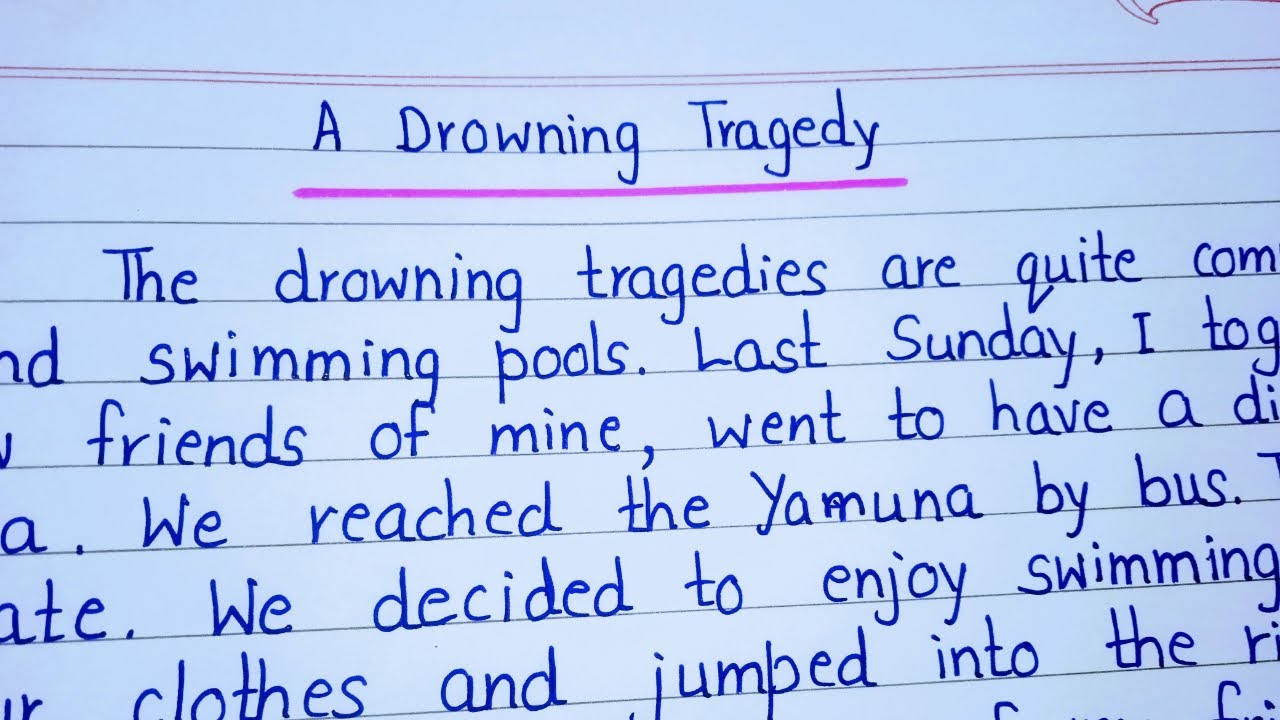 A Drowning Tragedy
The drowning tragedies are quite com
nd swimming pools. Last Sunday, I tog
friends of mine, went to have a di
a. We reached the Yamuna by bus.
ate. We decided to enjoy swimming
ur clothes and jumped into the ri